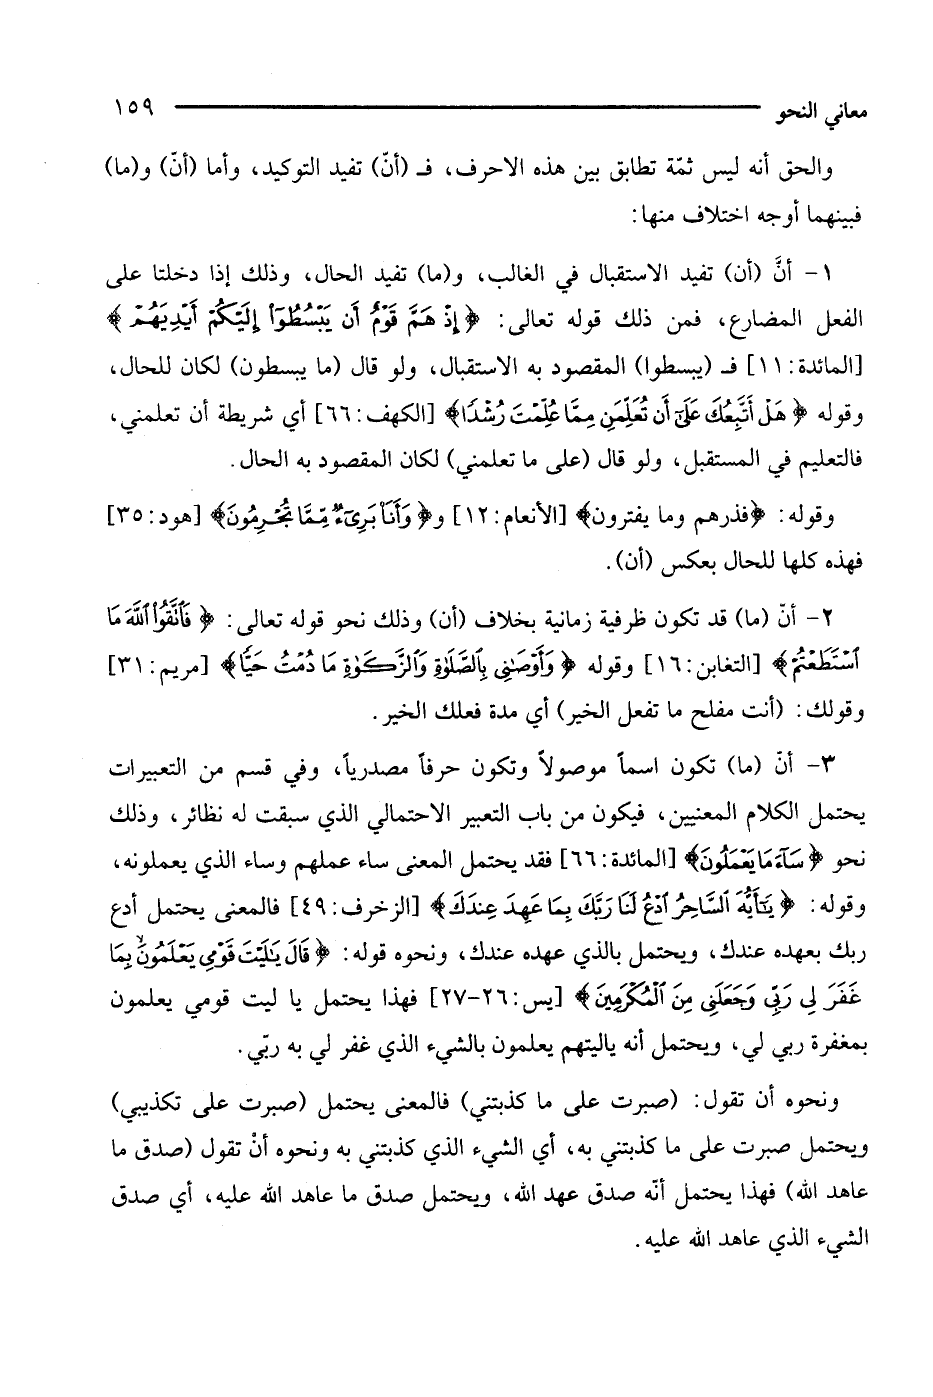 معاني النحو ١٥٩
والحق أنه ليس ثمّة تطابق بين هذه الاحرف، فـ (أنّ) تفيد التوكيد، وأما (أنّ) و(ما)
فبينهما أوجه اختلاف منها:
١- أنَّ (أن) تفيد الاستقبال في الغالب، و(ما) تفيد الحال، وذلك إذا دخلتا على
الفعل المضارع، فمن ذلك قوله تعالى: ﴿إِذْ هَمَّ قَوْمٌ أَن يَبْسُطُوٓا۟ إِلَيْكُمْ أَيْدِيَهُمْ﴾
[المائدة:١١] فـ (يبسطوا) المقصود به الاستقبال، ولو قال (ما يبسطون) لكان للحال،
وقوله ﴿هَلْ أَتَّبِعُكَ عَلَىٰٓ أَن تُعَلِّمَنِ مِمَّا عُلِّمْتَ رُشْدًا﴾ [الكهف:٦٦] أي شريطة أن تعلمني،
فالتعليم في المستقبل، ولو قال (على ما تعلمني) لكان المقصود به الحال.
وقوله: ﴿فذرهم وما يفترون﴾ [الأنعام:١٢] و﴿وَأَنَا۠ بَرِىٓءٌ مِّمَّا تُجْرِمُونَ﴾ [هود:٣٥]
فهذه كلها للحال بعكس (أن).
٢- أنّ (ما) قد تكون ظرفية زمانية بخلاف (أن) وذلك نحو قوله تعالى: ﴿فَٱتَّقُوا۟ ٱللَّهَ مَا
ٱسْتَطَعْتُمْ﴾ [التغابن:١٦] وقوله ﴿وَأَوْصَٰنِى بِٱلصَّلَوٰةِ وَٱلزَّكَوٰةِ مَا دُمْتُ حَيًّا﴾ [مريم:٣١]
وقولك: (أنت مفلح ما تفعل الخير) أي مدة فعلك الخير.
٣- أنّ (ما) تكون اسماً موصولاً وتكون حرفاً مصدرياً، وفي قسم من التعبيرات
يحتمل الكلام المعنيين، فيكون من باب التعبير الاحتمالي الذي سبقت له نظائر، وذلك
نحو ﴿سَآءَ مَا يَعْمَلُونَ﴾ [المائدة:٦٦] فقد يحتمل المعنى ساء عملهم وساء الذي يعملونه،
وقوله: ﴿يَٰٓأَيُّهَ ٱلسَّاحِرُ ٱدْعُ لَنَا رَبَّكَ بِمَا عَهِدَ عِندَكَ﴾ [الزخرف:٤٩] فالمعنى يحتمل أدع
ربك بعهده عندك، ويحتمل بالذي عهده عندك، ونحوه قوله: ﴿قَالَ يَٰلَيْتَ قَوْمِى يَعْلَمُونَۙ بِمَا
غَفَرَ لِى رَبِّى وَجَعَلَنِى مِنَ ٱلْمُكْرَمِينَ﴾ [يس:٢٦-٢٧] فهذا يحتمل يا ليت قومي يعلمون
بمغفرة ربي لي، ويحتمل أنه ياليتهم يعلمون بالشيء الذي غفر لي به ربّي.
ونحوه أن تقول: (صبرت على ما كذبتني) فالمعنى يحتمل (صبرت على تكذيبي)
ويحتمل صبرت على ما كذبتني به، أي الشيء الذي كذبتني به ونحوه أنْ تقول (صدق ما
عاهد الله) فهذا يحتمل أنّه صدق عهد الله، ويحتمل صدق ما عاهد الله عليه، أي صدق
الشيء الذي عاهد الله عليه.